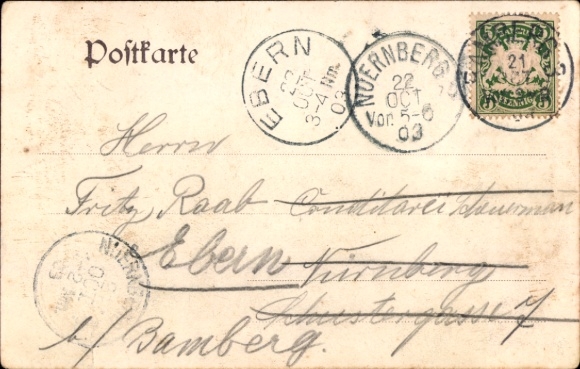 Postkarte
EBERN
22
OCT
3-4 Nm.
03
NUERNBERG
22
OCT
Vor. 5-6
03
21
5
PFENNIG
Herrn
Fritz Raab Conditorei
Ebern Nürnberg
Schustergasse 7
b/ Bamberg.
NUERNBERG